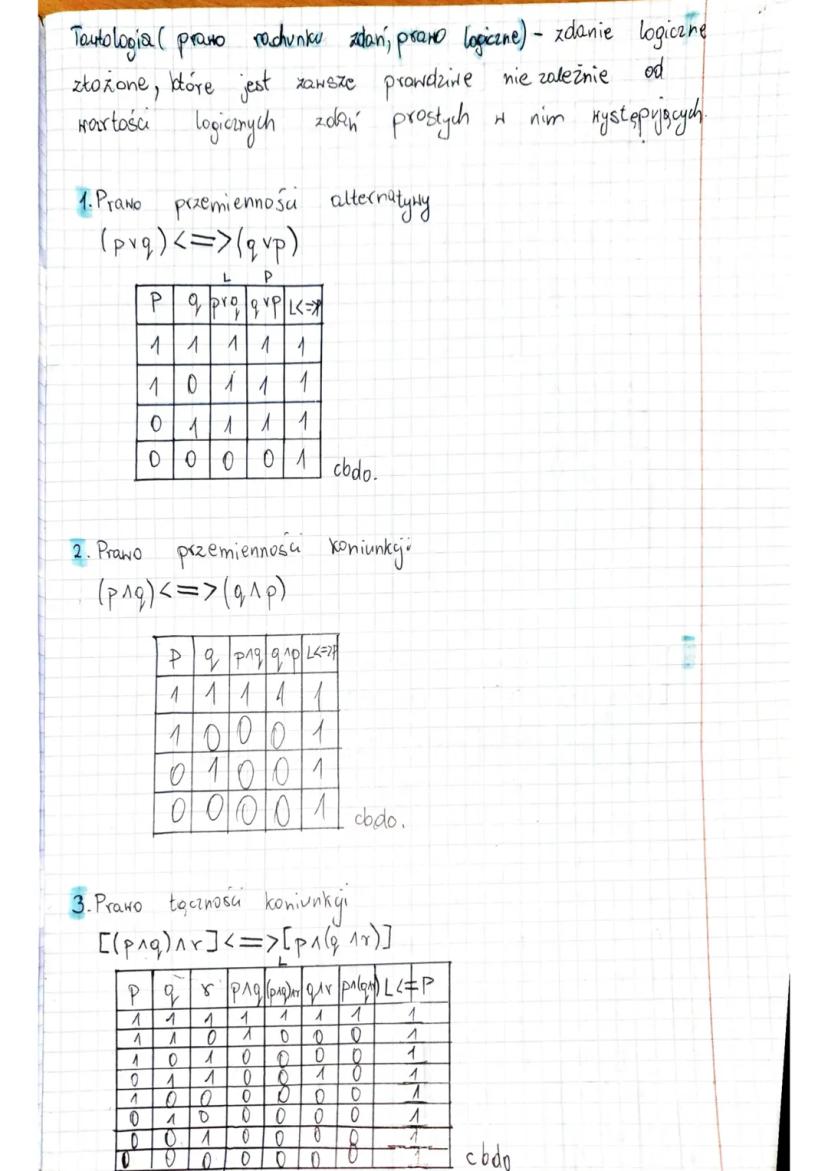 Tautologia ( prawo rachunku zdań, prawo logiczne) - zdanie logiczne
złożone, które jest zawsze prawdziwe nie zależnie od
wartości logicznych zdań prostych w nim występujących.
1. Prawo przemienności alternatywy
(p∨q) <=> (q∨p)
L P
p q p∨q q∨p L<=>P
1 1 1 1 1
1 0 1 1 1
0 1 1 1 1
0 0 0 0 1
cbdo.
2. Prawo przemienności koniunkcji
(p∧q) <=> (q∧p)
p q p∧q q∧p L<=>P
1 1 1 1 1
1 0 0 0 1
0 1 0 0 1
0 0 0 0 1
cbdo.
3. Prawo łączności koniunkcji
[(p∧q)∧r] <=> [p∧(q∧r)]
L
p q r p∧q (p∧q)∧r q∧r p∧(q∧r) L<=>P
1 1 1 1 1 1 1 1
1 1 0 1 0 0 0 1
1 0 1 0 0 0 0 1
0 1 1 0 0 1 0 1
1 0 0 0 0 0 0 1
0 1 0 0 0 0 0 1
0 0 1 0 0 0 0 1
0 0 0 0 0 0 0 1
cbdo